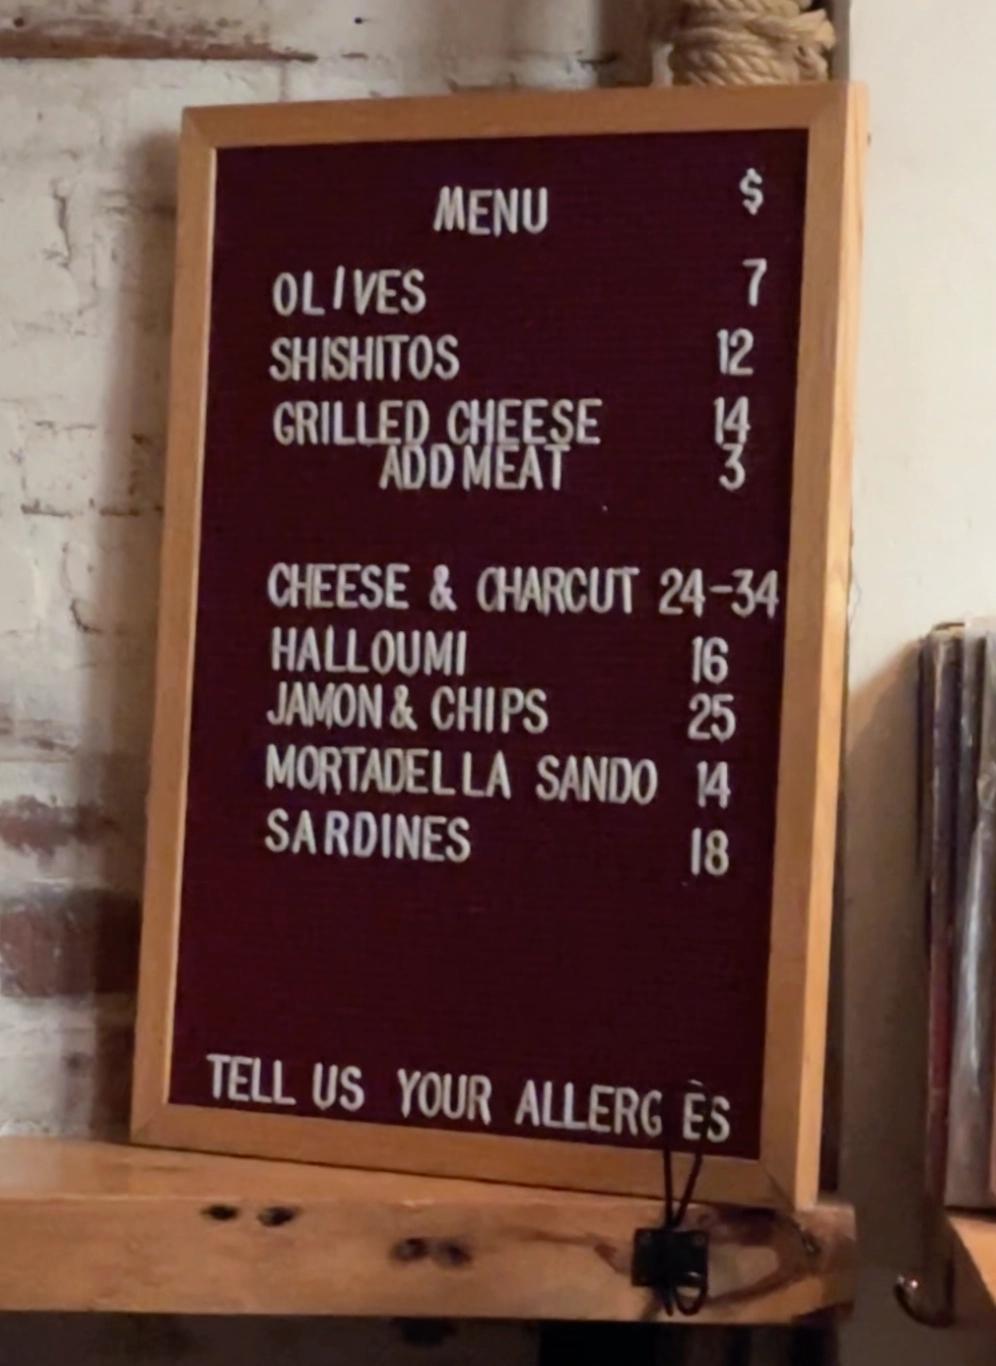 MENU $
OLIVES 7
SHISHITOS 12
GRILLED CHEESE 14
ADD MEAT 3
CHEESE & CHARCUT 24-34
HALLOUMI 16
JAMON & CHIPS 25
MORTADELLA SANDO 14
SARDINES 18
TELL US YOUR ALLERG ES